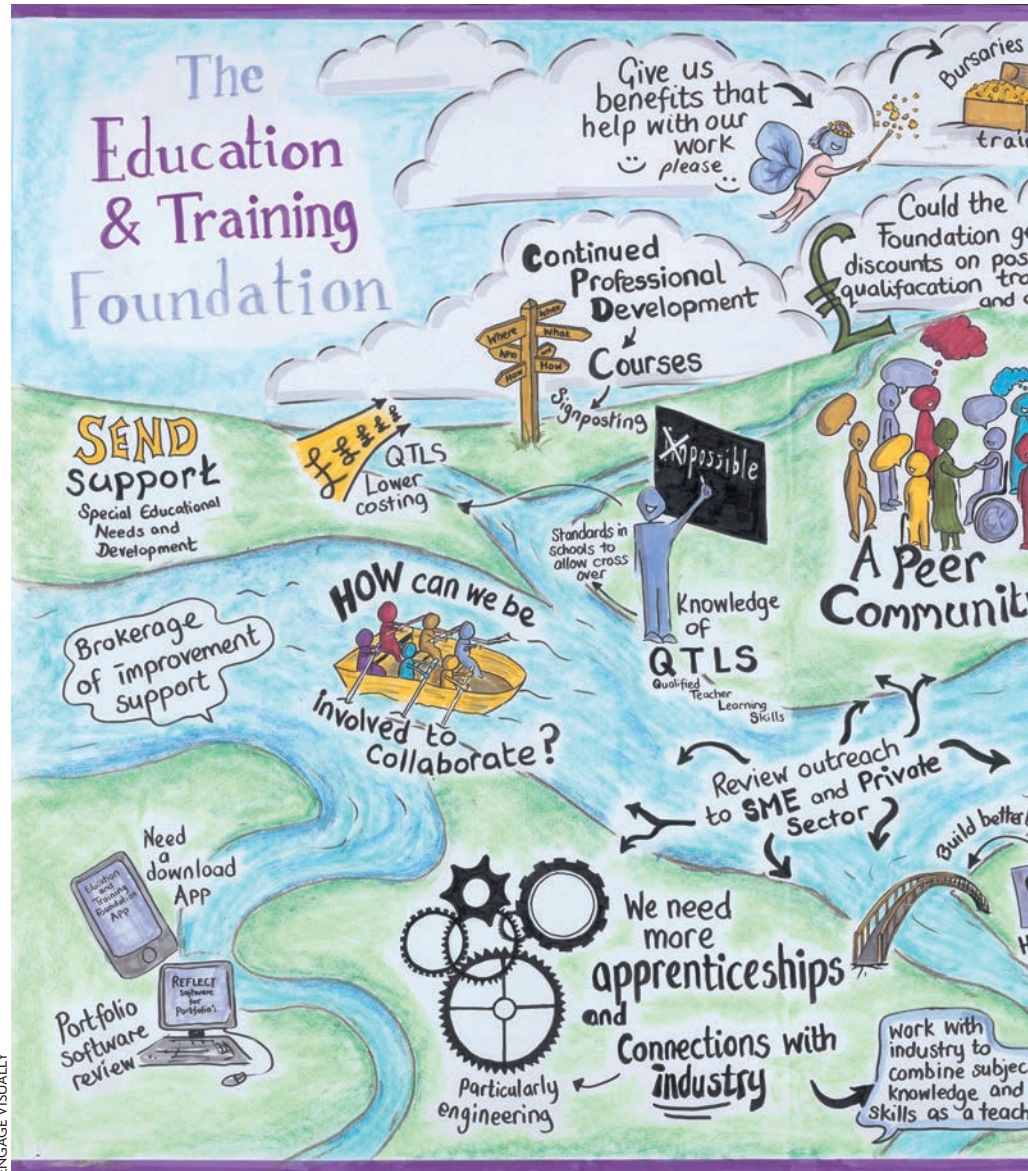 The
Education
& Training
Foundation
Give us
benefits that
help with our
work
please
Bursaries
Could the
Foundation
discounts on
qualifacation
and
Continued
Professional
Development
Courses
Signposting
When
Where
What
Who
How
How
SEND
Support
Special Educational
Needs and
Development
£ £ £ £ £
QTLS
Lower
costing
Xmpossible
Standards in
schools to
allow cross
over
Knowledge
of
QTLS
Qualified
Teacher
Learning
Skills
A Peer
Brokerage
of improvement
support
HOW can we be
involved to
collaborate?
Review outreach
to SME and Private
Sector
Build better
Need
a
download
App
Education
and
Training
Foundation
App
REFLECT
Software
for
Portfolio's
Portfolio
software
review
We need
more
apprenticeships
and
Connections with
industry
particularly
engineering
work with
industry to
combine
knowledge and
skills as a
ENGAGE VISUALLY